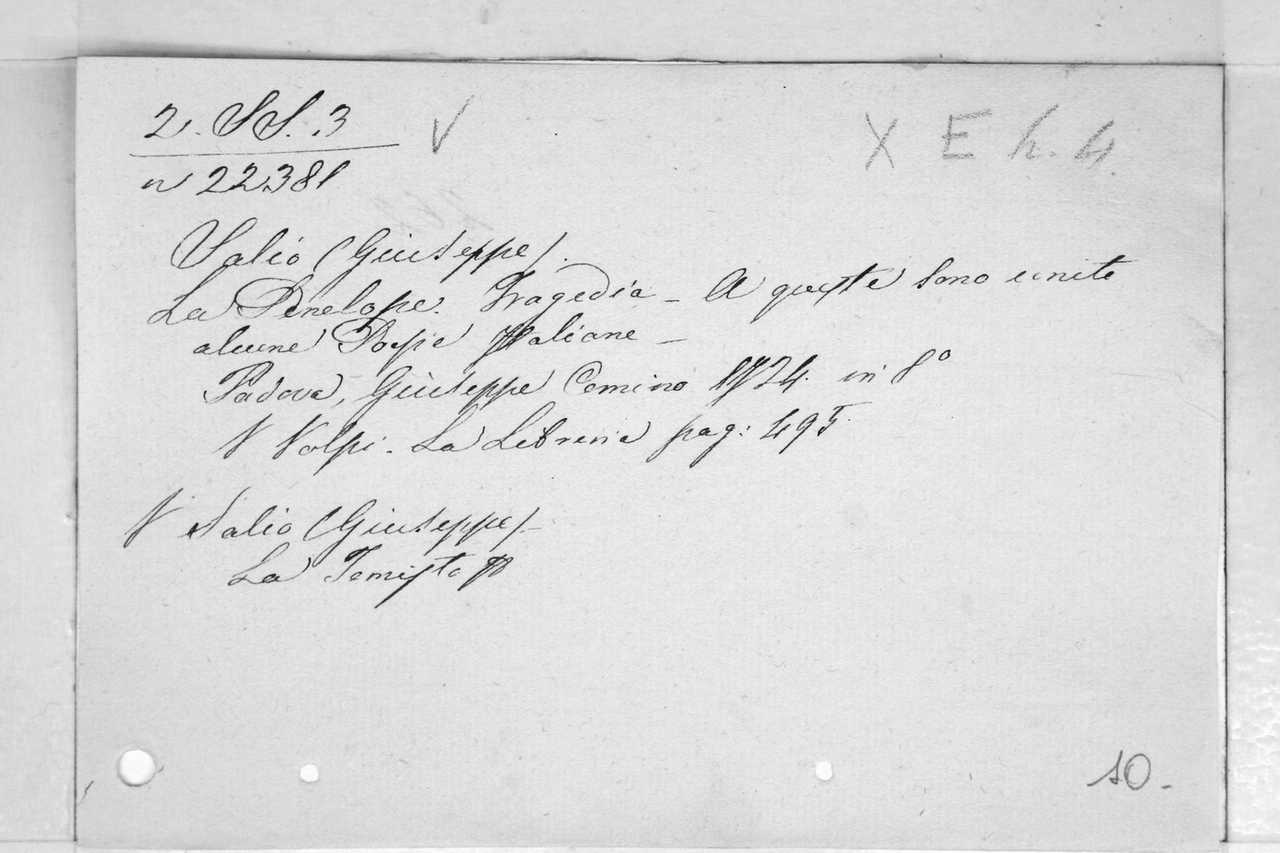 2. SS. 3 V X E h. 4
n 22381
Salio (Giuseppe).
La Penelope. Tragedia - A queste sono unite
alcune Poesie Italiane -
Padova, Giuseppe Comino 1724. in 8°
V Volpi. La Libreria pag: 495.
V Salio (Giuseppe) -
La Temisto
10.